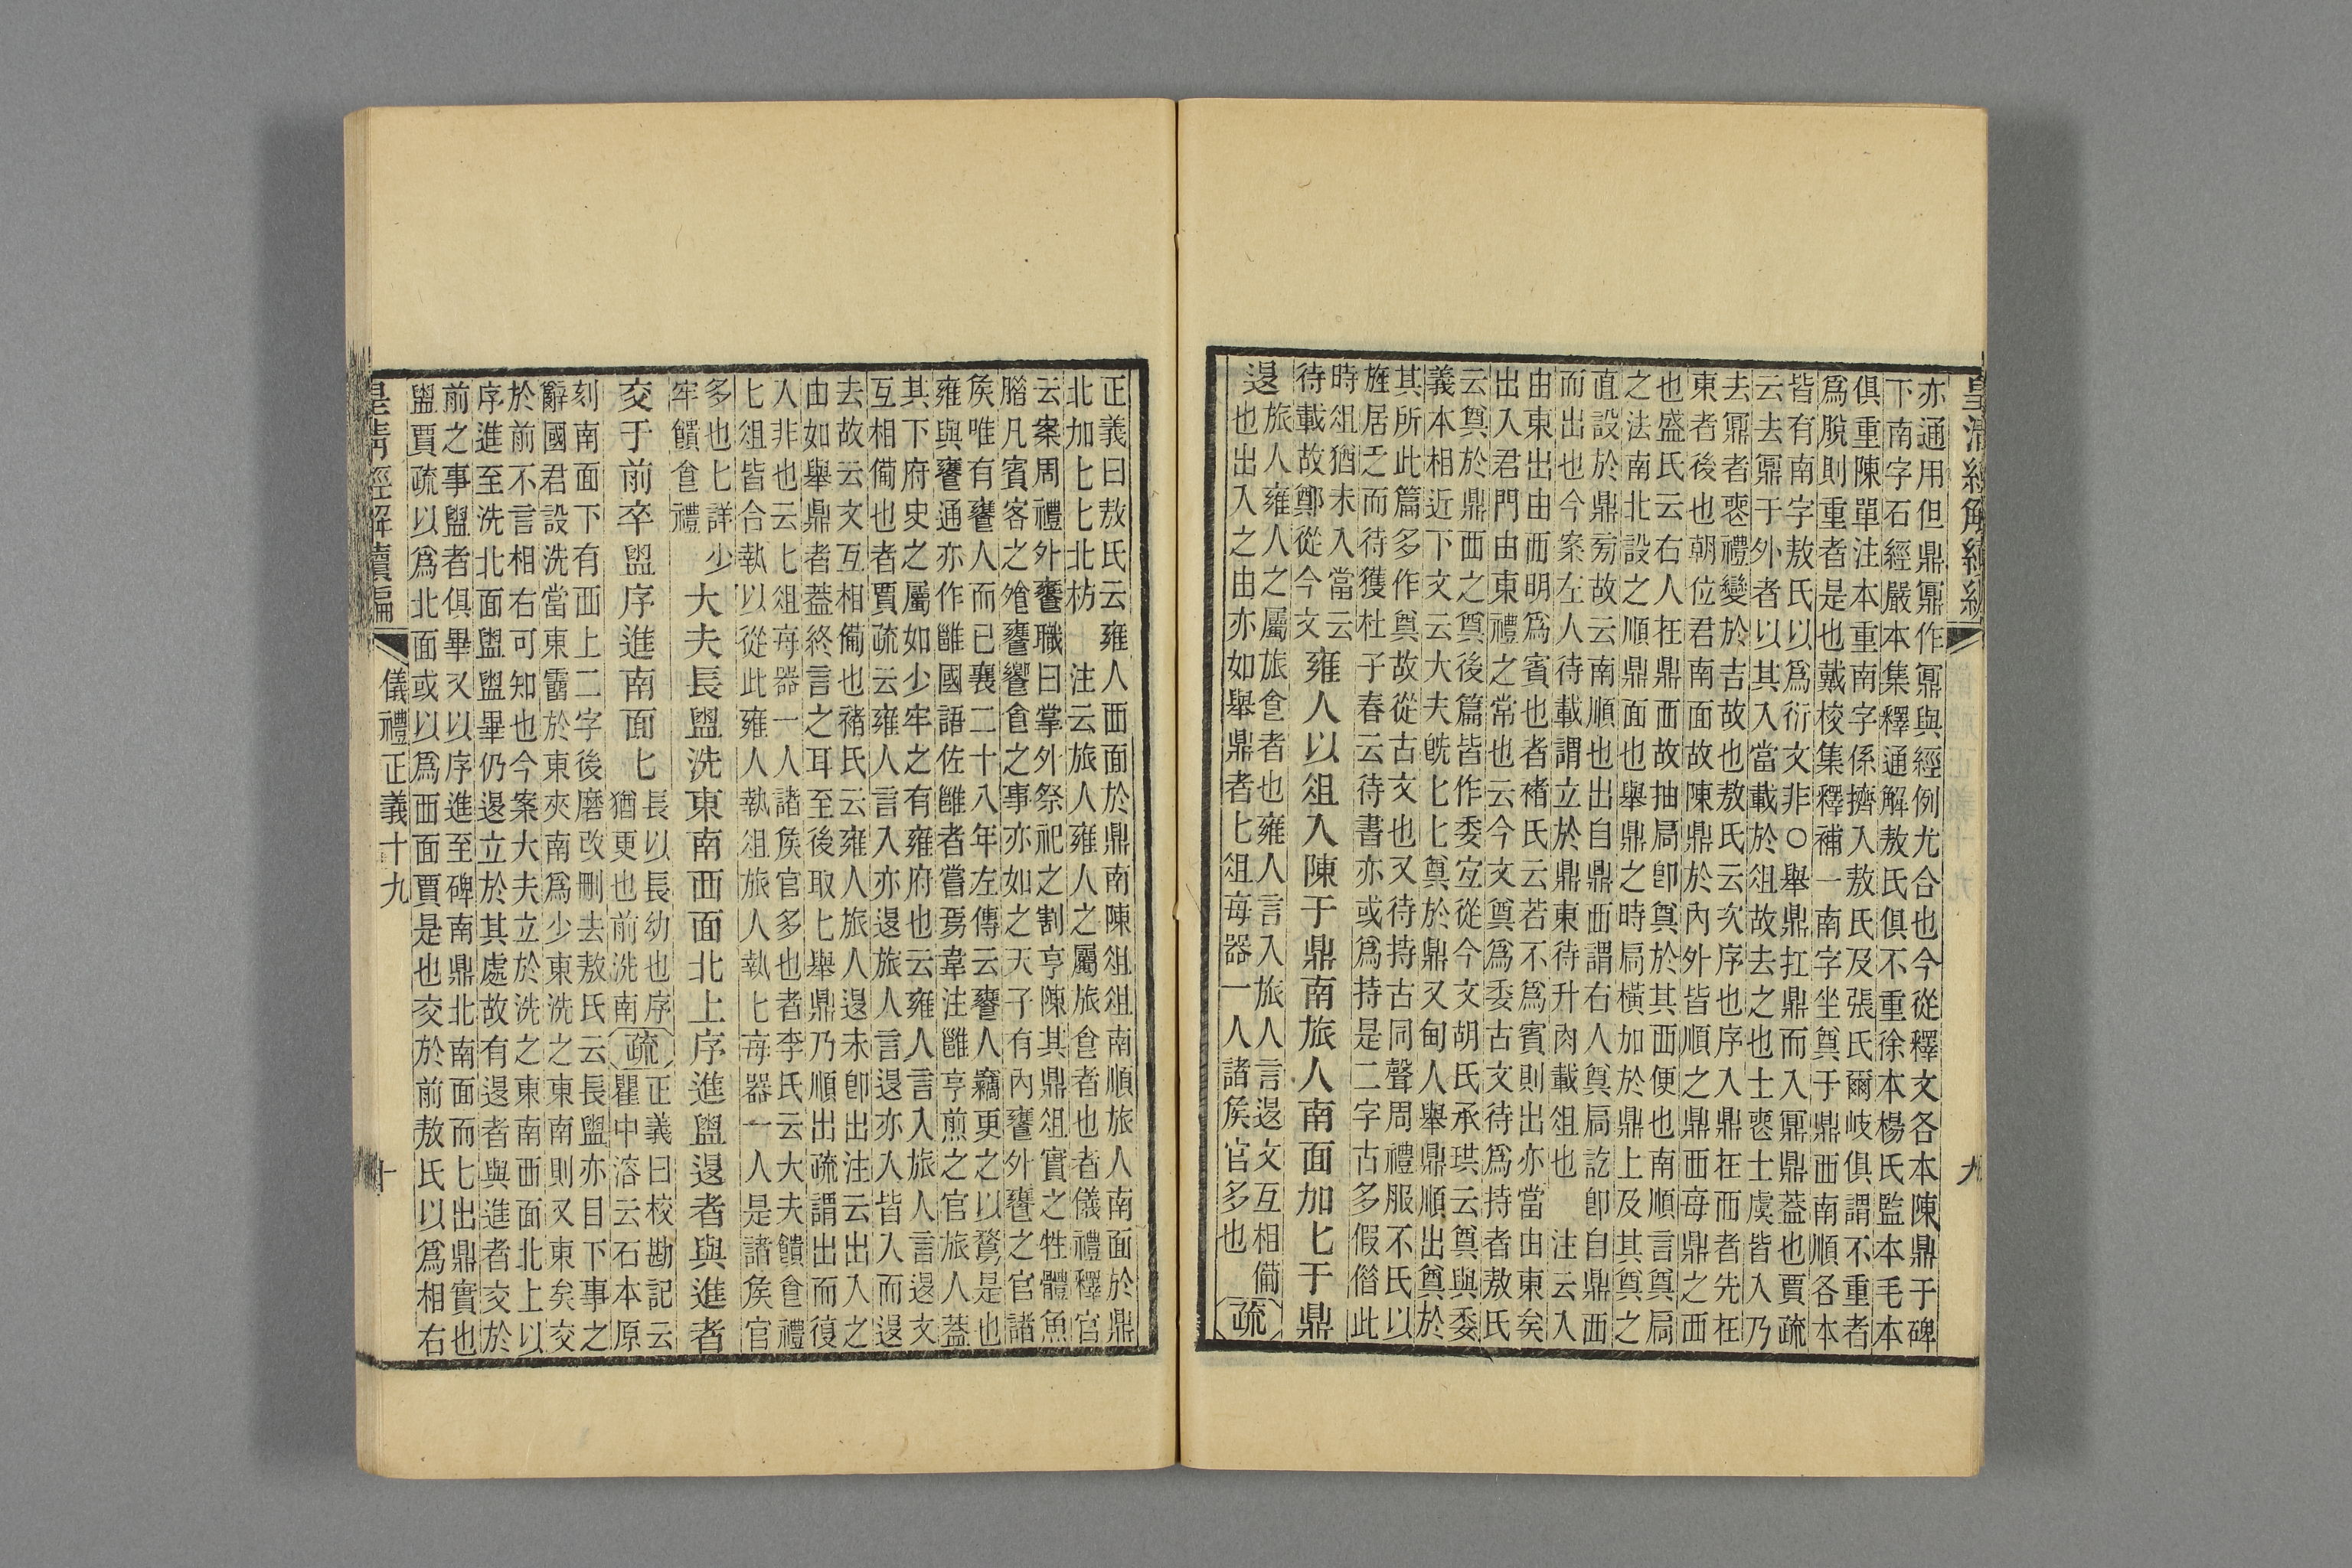 皇清經解續編
九
亦通用但鼎鼏作鼏與經例尤合也今從釋文各本陳鼎于碑
下南字石經嚴本集釋通解敖氏俱不重徐本楊氏監本毛本
俱重陳單注本重南字係擠入敖氏及張氏爾岐俱謂不重者
爲脫則重者是也戴校集釋補一南字坐奠于鼎西南順各本
皆有南字敖氏以爲衍文非○舉鼎扛鼎而入鼏鼎蓋也賈疏
云去鼏于外者以其入當載於俎故去之也士喪士虞皆入乃
去鼏者喪禮變於吉故也敖氏云次序也序入鼎在而者先在
東者後也朝位君南面故陳鼎於內外皆順之鼎西每鼎之西
也盛氏云右人在鼎西故抽扃卽奠於其西便也南順言奠扃
之法南北設之順鼎面也舉鼎之時扃橫加於鼎上及其奠之
直設於鼎旁故云南順也出自鼎西謂右人奠扃訖卽自鼎西
而出也今案左人待載謂立於鼎東待升肉載俎也　注云入
由東出由西明爲賓也者褚氏云若不爲賓則出亦當由東矣
出入君門由東禮之常也云今文奠爲委古文待爲持者敖氏
云奠於鼎西之奠後篇皆作委宐從今文胡氏承珙云奠與委
義本相近下文云大夫旣匕匕奠於鼎又甸人舉鼎順出奠於
其所此篇多作奠故從古文也又待持古同聲周禮服不氏以
旌居乏而待獲杜子春云待書亦或爲持是二字古多假借此
時俎猶未入當云
待載故鄭從今文
雍人以俎入陳于鼎南旅人南面加匕于鼎
退
旅人雍人之屬旅食者也雍人言入旅人言退文互相備
也出入之由亦如舉鼎者匕俎每器一人諸侯官多也
疏
正義曰敖氏云雍人西面於鼎南陳俎俎南順旅人南面於鼎
北加匕匕北枋　注云旅人雍人之屬旅食者也者儀禮釋官
云案周禮外饔職曰掌外祭祀之割亨陳其鼎俎實之牲體魚
腊凡賓客之飧饔饗食之事亦如之天子有內饔外饔之官諸
侯唯有饔人而已襄二十八年左傳云饔人竊更之以鶩是也
雍與饔通亦作雝國語佐雝者嘗焉韋注雝亨煎之官旅人蓋
其下府史之屬如少牢之有雍府也云雍人言入旅人言退文
互相備也者賈疏云雍人言入亦退旅人言退亦人皆入而退
去故云文互相備也褚氏云雍人旅人退未卽出注云出入之
由如舉鼎者蓋終言之耳至後取匕舉鼎乃順出疏謂出而復
入非也云匕俎每器一人諸侯官多也者李氏云大夫饋食禮
匕俎皆合執以從此雍人執俎旅人執匕每器一人是諸侯官
多也匕詳少
牢饋食禮
大夫長盥洗東南西面北上序進盥退者與進者
交于前卒盥序進南面匕
長以長幼也序
猶更也前洗南
疏
正義曰校勘記云
瞿中溶云石本原
刻南面下有西上二字後磨改刪去敖氏云長盥亦目下事之
辭國君設洗當東霤於東夾南爲少東洗之東南則又東矣交
於前不言相右可知也今案大夫立於洗之東南西面北上以
序進至洗北面盥盥畢仍退立於其處故有退者與進者交於
前之事盥者俱畢又以序進至碑南鼎北南面而匕出鼎實也
盥賈疏以爲北面或以爲西面賈是也交於前敖氏以爲相右
皇清經解續編
儀禮正義十九
十